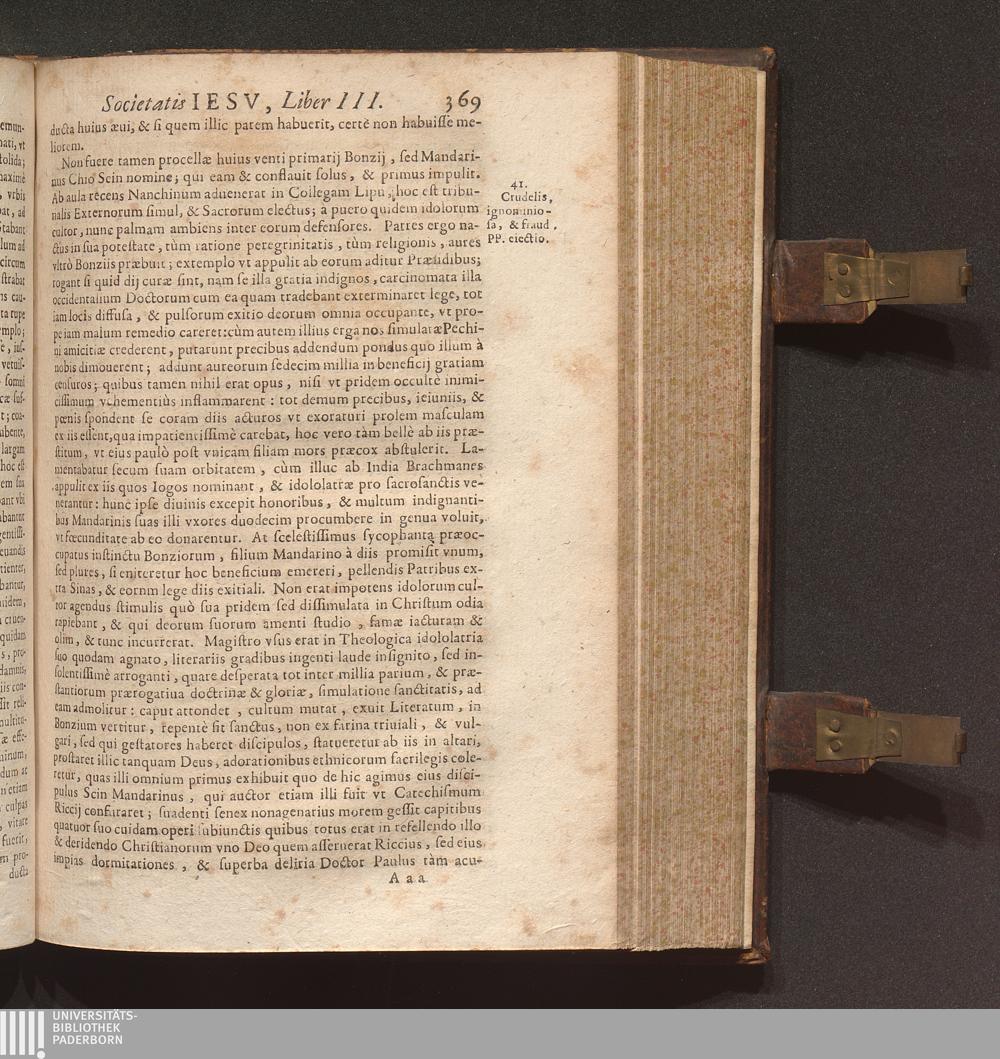 Societatis IESV, Liber III. 369
ducta huius æui, & si quem illic patem habuerit, certè non habuisse me-
liorem.
Non fuere tamen procellæ huius venti primarij Bonzij, sed Mandari-
nus Chio Scin nomine; qui eam & conflauit solus, & primus impulit.
Ab aula recens Nanchinum aduenerat in Collegam Lipu, hoc est tribu-
nalis Externorum simul, & Sacrorum electus; a puero quidem idolorum
cultor, nunc palmam ambiens inter eorum defensores. Patres ergo na-
ctus in sua potestate, tùm ratione peregrinitatis, tùm religionis, aures
vltrò Bonziis præbuit; extemplo vt appulit ab eorum aditur Præsidibus;
rogant si quid dij curæ sint, nam se illa gratia indignos, carcinomata illa
occidentalium Doctorum cum ea quam tradebant exterminaret lege, tot
iam locis diffusa, & pulsorum exitio deorum omnia occupante, vt pro-
pe iam malum remedio careret: cùm autem illius erga nos simulatæ Pechi-
ni amicitiæ crederent, putarunt precibus addendum pondus quo illum à
nobis dimouerent; addunt aureorum sedecim millia in beneficij gratiam
censuros; quibus tamen nihil erat opus, nisi vt pridem occultè inimi-
cissimum vehementiùs inflammarent: tot demum precibus, ieiuniis, &
pœnis spondent se coram diis acturos vt exoraturi prolem masculam
ex iis essent, qua impatientissimè carebat, hoc vero tàm bellè ab iis præ-
stitum, vt eius paulò post vnicam filiam mors præcox abstulerit. La-
mentabatur secum suam orbitatem, cùm illuc ab India Brachmanes
appulit ex iis quos Iogos nominant, & idololatræ pro sacrosanctis ve-
nerantur: hunc ipse diuinis excepit honoribus, & multum indignanti-
bus Mandarinis suas illi vxores duodecim procumbere in genua voluit,
vt fœcunditate ab eo donarentur. At scelestissimus sycophanta præoc-
cupatus instinctu Bonziorum, filium Mandarino à diis promisit vnum,
sed plures, si eniteretur hoc beneficium emereri, pellendis Patribus ex-
tra Sinas, & eornm lege diis exitiali. Non erat impotens idolorum cul-
tor agendus stimulis quò sua pridem sed dissimulata in Christum odia
rapiebant, & qui deorum suorum amenti studio, famæ iacturam &
olim, & tunc incurrerat. Magistro vsus erat in Theologica idololatria
suo quodam agnato, literariis gradibus ingenti laude insignito, sed in-
solentissimè arroganti, quare desperata tot inter millia parium, & præ-
stantiorum prærogatiua doctrinæ & gloriæ, simulatione sanctitatis, ad
eam admolitur: caput attondet, cultum mutat, exuit Literatum, in
Bonzium vertitur, repentè fit sanctus, non ex farina triuiali, & vul-
gari, sed qui gestatores haberet discipulos, statueretur ab iis in altari,
prostaret illic tanquam Deus, adorationibus ethnicorum sacrilegis cole-
retur, quas illi omnium primus exhibuit quo de hic agimus eius disci-
pulus Scin Mandarinus, qui auctor etiam illi fuit vt Catechismum
Riccij confutaret; suadenti senex nonagenarius morem gessit capitibus
quatuor suo cuidam operi subiunctis quibus totus erat in refellendo illo
& deridendo Christianorum vno Deo quem asseruerat Riccius, sed eius
impias dormitationes, & superba deliria Doctor Paulus tàm acu-
A a a
41.
Crudelis,
ignominio-
sa, & fraud.
PP. eiectio.
emun-
nati, vt
tolida;
maximè
, vrbis
bat, ad
stabant
lum ad
circum
strabat
ns cau-
ta rupe
mplo;
somni
ubente,
largam
hoc est
em sua
bant vbi
abantur
euandis
tienter,
bantur,
quidam
s, pro-
damnis,
iis con-
multitu-
dum at
n etiam
culpas
, vitare
fuerit,
m pro-
ducta
UNIVERSITÄTS-
BIBLIOTHEK
PADERBORN